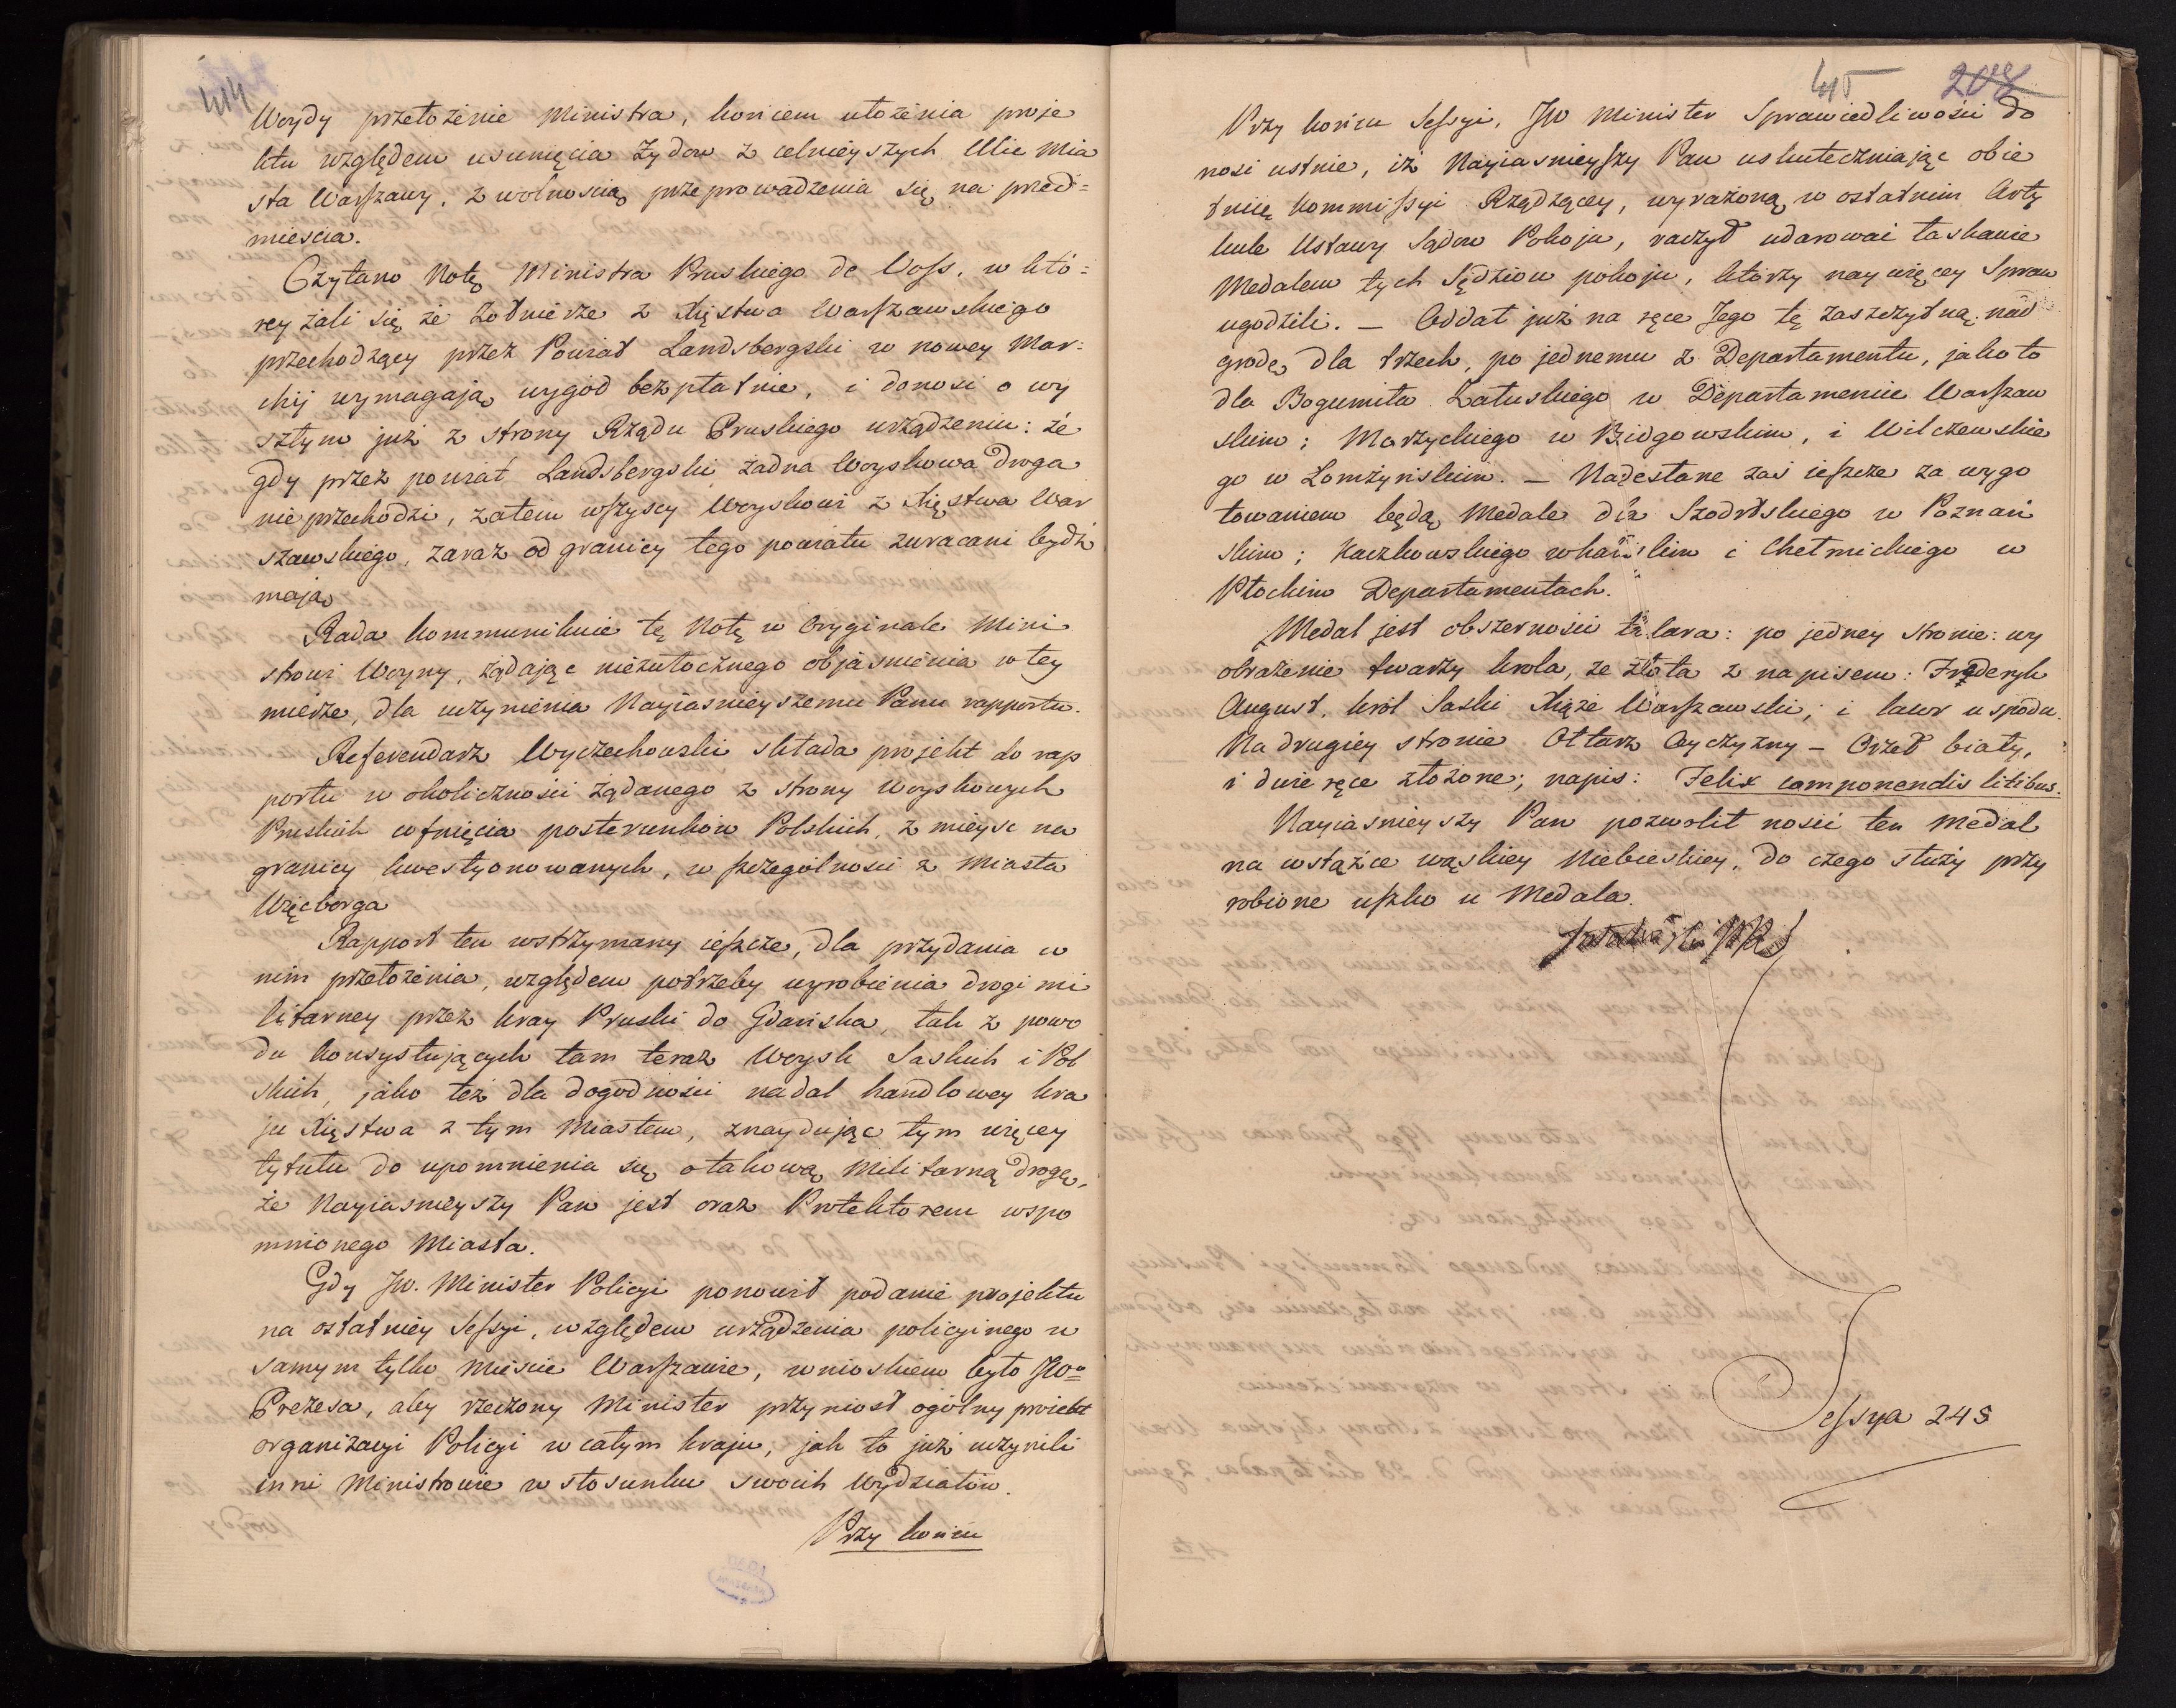 414
Woydy przełożenie Ministra, końcem ułożenia proje
ktu względem usunięcia Żydow z celnieyszych Ulic Mia
sta Warszawy, z wolnoscią przeprowadzenia się na przed=
miescia.
Czytano Notę Ministra Pruskiego de Voss, w któ=
rey żali się że Żołnierze z Xięstwa Warszawskiego
przechodzący przez Powiat Landsbergski w nowey Mar=
chij wymagają wygod bezpłatnie, i donosi o wy
szłym już z strony Rządu Pruskiego urządzeniu: że
gdy przez powiat Landsbergski żadna Woyskowa droga
nie przechodzi, zatem wszyscy Woyskowi z Xięstwa War
szawskiego, zaraz od granicy tego powiatu zwracani bydź
mają
Rada kommunikuie tę Notę w Oryginale Mini
strowi Woyny, żądając niezwłocznego objasnienia w tey
mierze, dla uczynienia Nayiasnieyszemu Panu rapportu.
Referendarz Wyczechowski składa projekt do rap
portu w okoliczności żądanego z strony Woyskowych
Pruskich cofnięcia posterunków Polskich, z mieysc na
granicy kwestyonowanych, w szczególnosci z Miasta
Więcborga
Rapport ten wstrzymany ieszcze, dla przydania w
nim przełożenia, względem potrzeby wyrobienia drogi mi
litarney przez kray Pruski do Gdańska, tak z powo
du konsystujących tam teraz Woysk Saskich i Pol
skich, jako też dla dogodności nadal handlowey kra
ju Xięstwa z tym Miastem, znaydując tym więcey
tytułu do upomnienia się o takową Militarną drogę,
że Nayiasnieyszy Pan jest oraz Protektorem wspo
mnionego Miasta.
Gdy JW. Minister Policyi ponowił podanie projektu
na ostatniey Sessyi, względem urządzenia policyinego w
samym tylko Miescie Warszawie, wnioskiem było JWo=
Prezesa, aby rzeczony Minister przyniosł ogólny proiekt
organizacyi Policyi w całym kraju, jak to już uczynili
inni Ministrowie w stosunku swoich Wydziałów.
Przy końcu
415 208
Przy końcu Sessyi, JW Minister Sprawiedliwości do
nosi ustnie, iż Nayiasnieyszy Pan uskuteczniając obie
tnicę Kommissyi Rządzącey, wyrażoną w ostatnim Arty
kule Ustawy Sądow Pokoju, raczył udarować łaskawie
Medalem tych Sędziow pokoju, którzy naywięcey Spraw
ugodzili. — Oddał już na ręce Jego tę zaszczytną nad
grodę dla trzech, po jednemu z Departamentu, jako to
dla Bogumiła Załuskiego w Departamencie Warszaw
skim; Marzyckiego w Bidgowskim, i Wilczewskie
go w Łomżyńskim. — Nadesłane zaś ieszcze za wygo
towaniem będą Medale dla Szodrskiego w Poznań
skim; Kaczkowskiego w Kaliskim i Chełmickiego w
Płockim Departamentach.
Medal jest obszerności talara: po jedney stronie: wy
obrażenie twarzy krola, ze złota z napisem: Fryderyk
August, król Saski Xiąże Warszawski; i lawr u spodu.
Na drugiey stronie Ołtarz Oyczyzny — Orzeł biały,
i dwie ręce złożone; napis: Felix componendis litibus.
Nayiasnieyszy Pan pozwolił nosić ten Medal
na wstążce wąskiey Niebieskiey, do czego służy przy
robione uszko u Medala.
Sessya 245